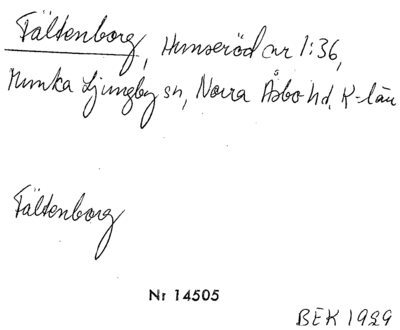 Fältenborg, Hunseröd nr 1:36,
Munka Ljungby sn, Norra Åsbo hd, K-län
Fältenborg
Nr 14505
BEK 1929